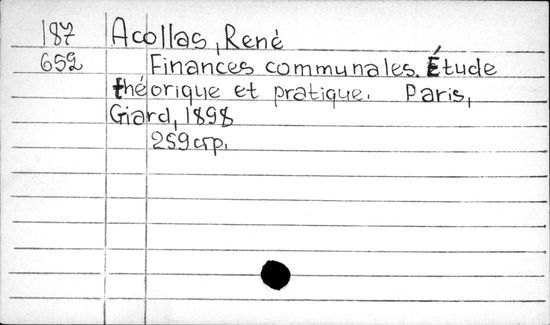 187 Acollas, René
652 Finances communales. Étude
théorique et pratique. Paris,
Giard, 1898
259 стр.